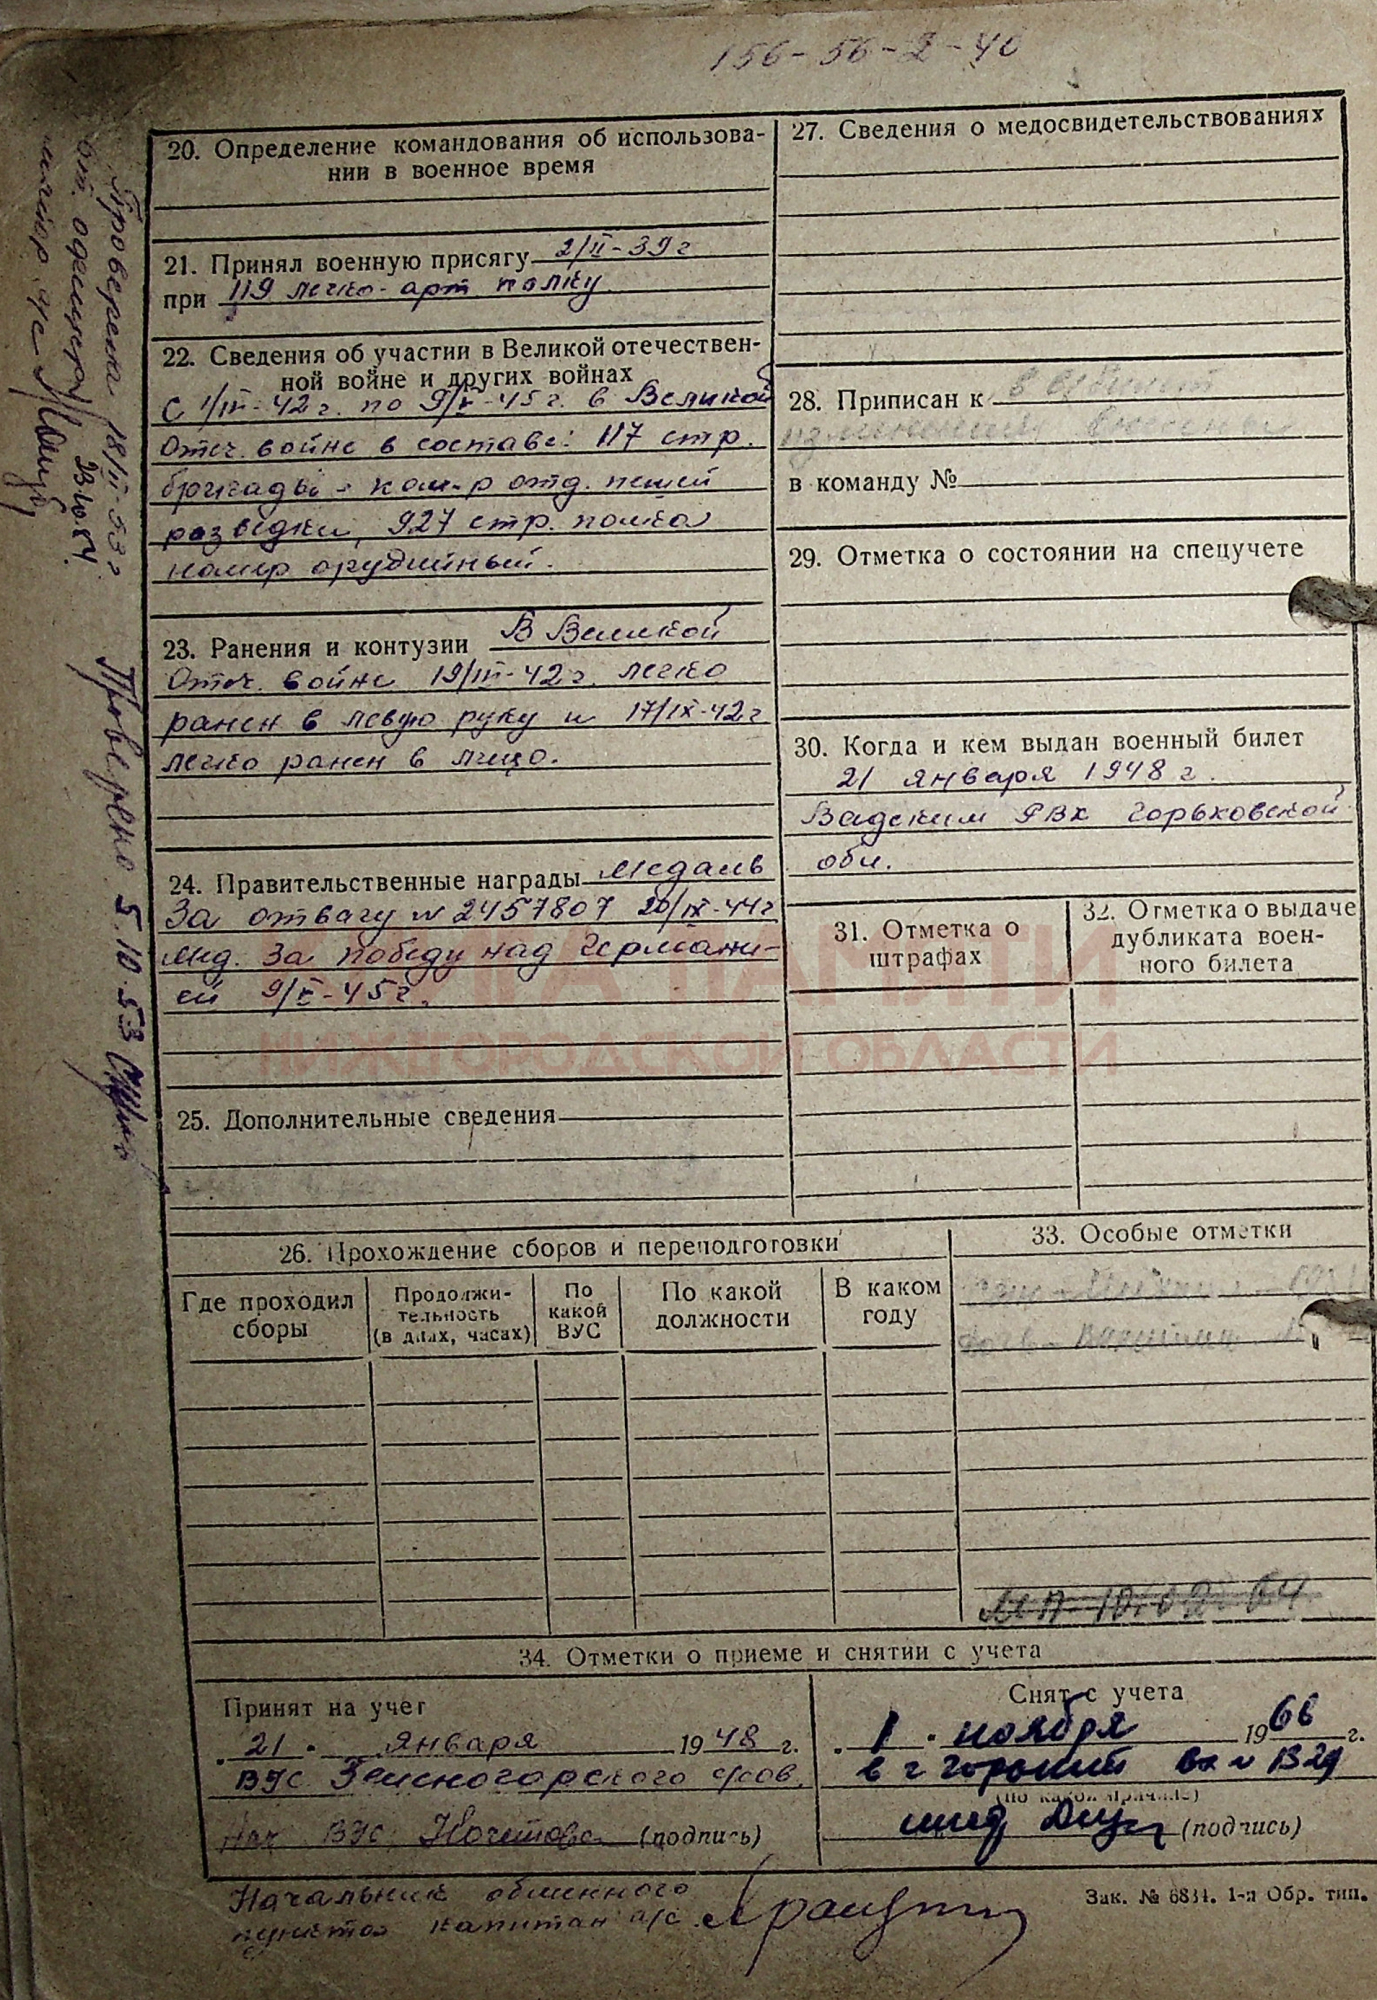 156-56-2-40
20. Определение командования об использова-
нии в военное время
21. Принял военную присягу 2/II-39г
при 119 легко-арт. полку
22. Сведения об участии в Великой отечествен-
ной войне и других войнах
С 1/III-42г. по 9/V-45г. в Великой
Отеч. войне в составе: 117 стр.
бригады - ком-р отд. пешей
разведки, 927 стр. полка
номер орудийный.
23. Ранения и контузии В Великой
Отеч. войне 19/III-42г. легко
ранен в левую руку и 17/IX-42г
легко ранен в лицо.
24. Правительственные награды Медаль
За отвагу N 2457807 20/IX-44г
Мед. За победу над Германи-
ей 9/V-45г.
25. Дополнительные сведения
27. Сведения о медосвидетельствованиях
28. Приписан к в в/билет
изменения внесены
в команду №
29. Отметка о состоянии на спецучете
30. Когда и кем выдан военный билет
21 января 1948 г.
Вадским РВК Горьковской
обл.
31. Отметка о
штрафах
32. Отметка о выдаче
дубликата воен-
ного билета
КНИГА ПАМЯТИ
НИЖЕГОРОДСКОЙ ОБЛАСТИ
26. Прохождение сборов и переподготовки
Где проходил
сборы
Продолжи-
тельность
(в днях, часах)
По
какой
ВУС
По какой
должности
В каком
году
33. Особые отметки
34. Отметки о приеме и снятии с учета
Принят на учет
"21" января 1948 г.
ВУС
Нач ВУС (подпись)
Снят с учета
"1" ноября 1966 г.
в г Горький
(по какой причине)
(подпись)
Начальник обменного
пункта капитан а/с
Зак. № 6834. 1-я Обр. тип.
Проверена 18/II-53г
Проверено 5.10.53